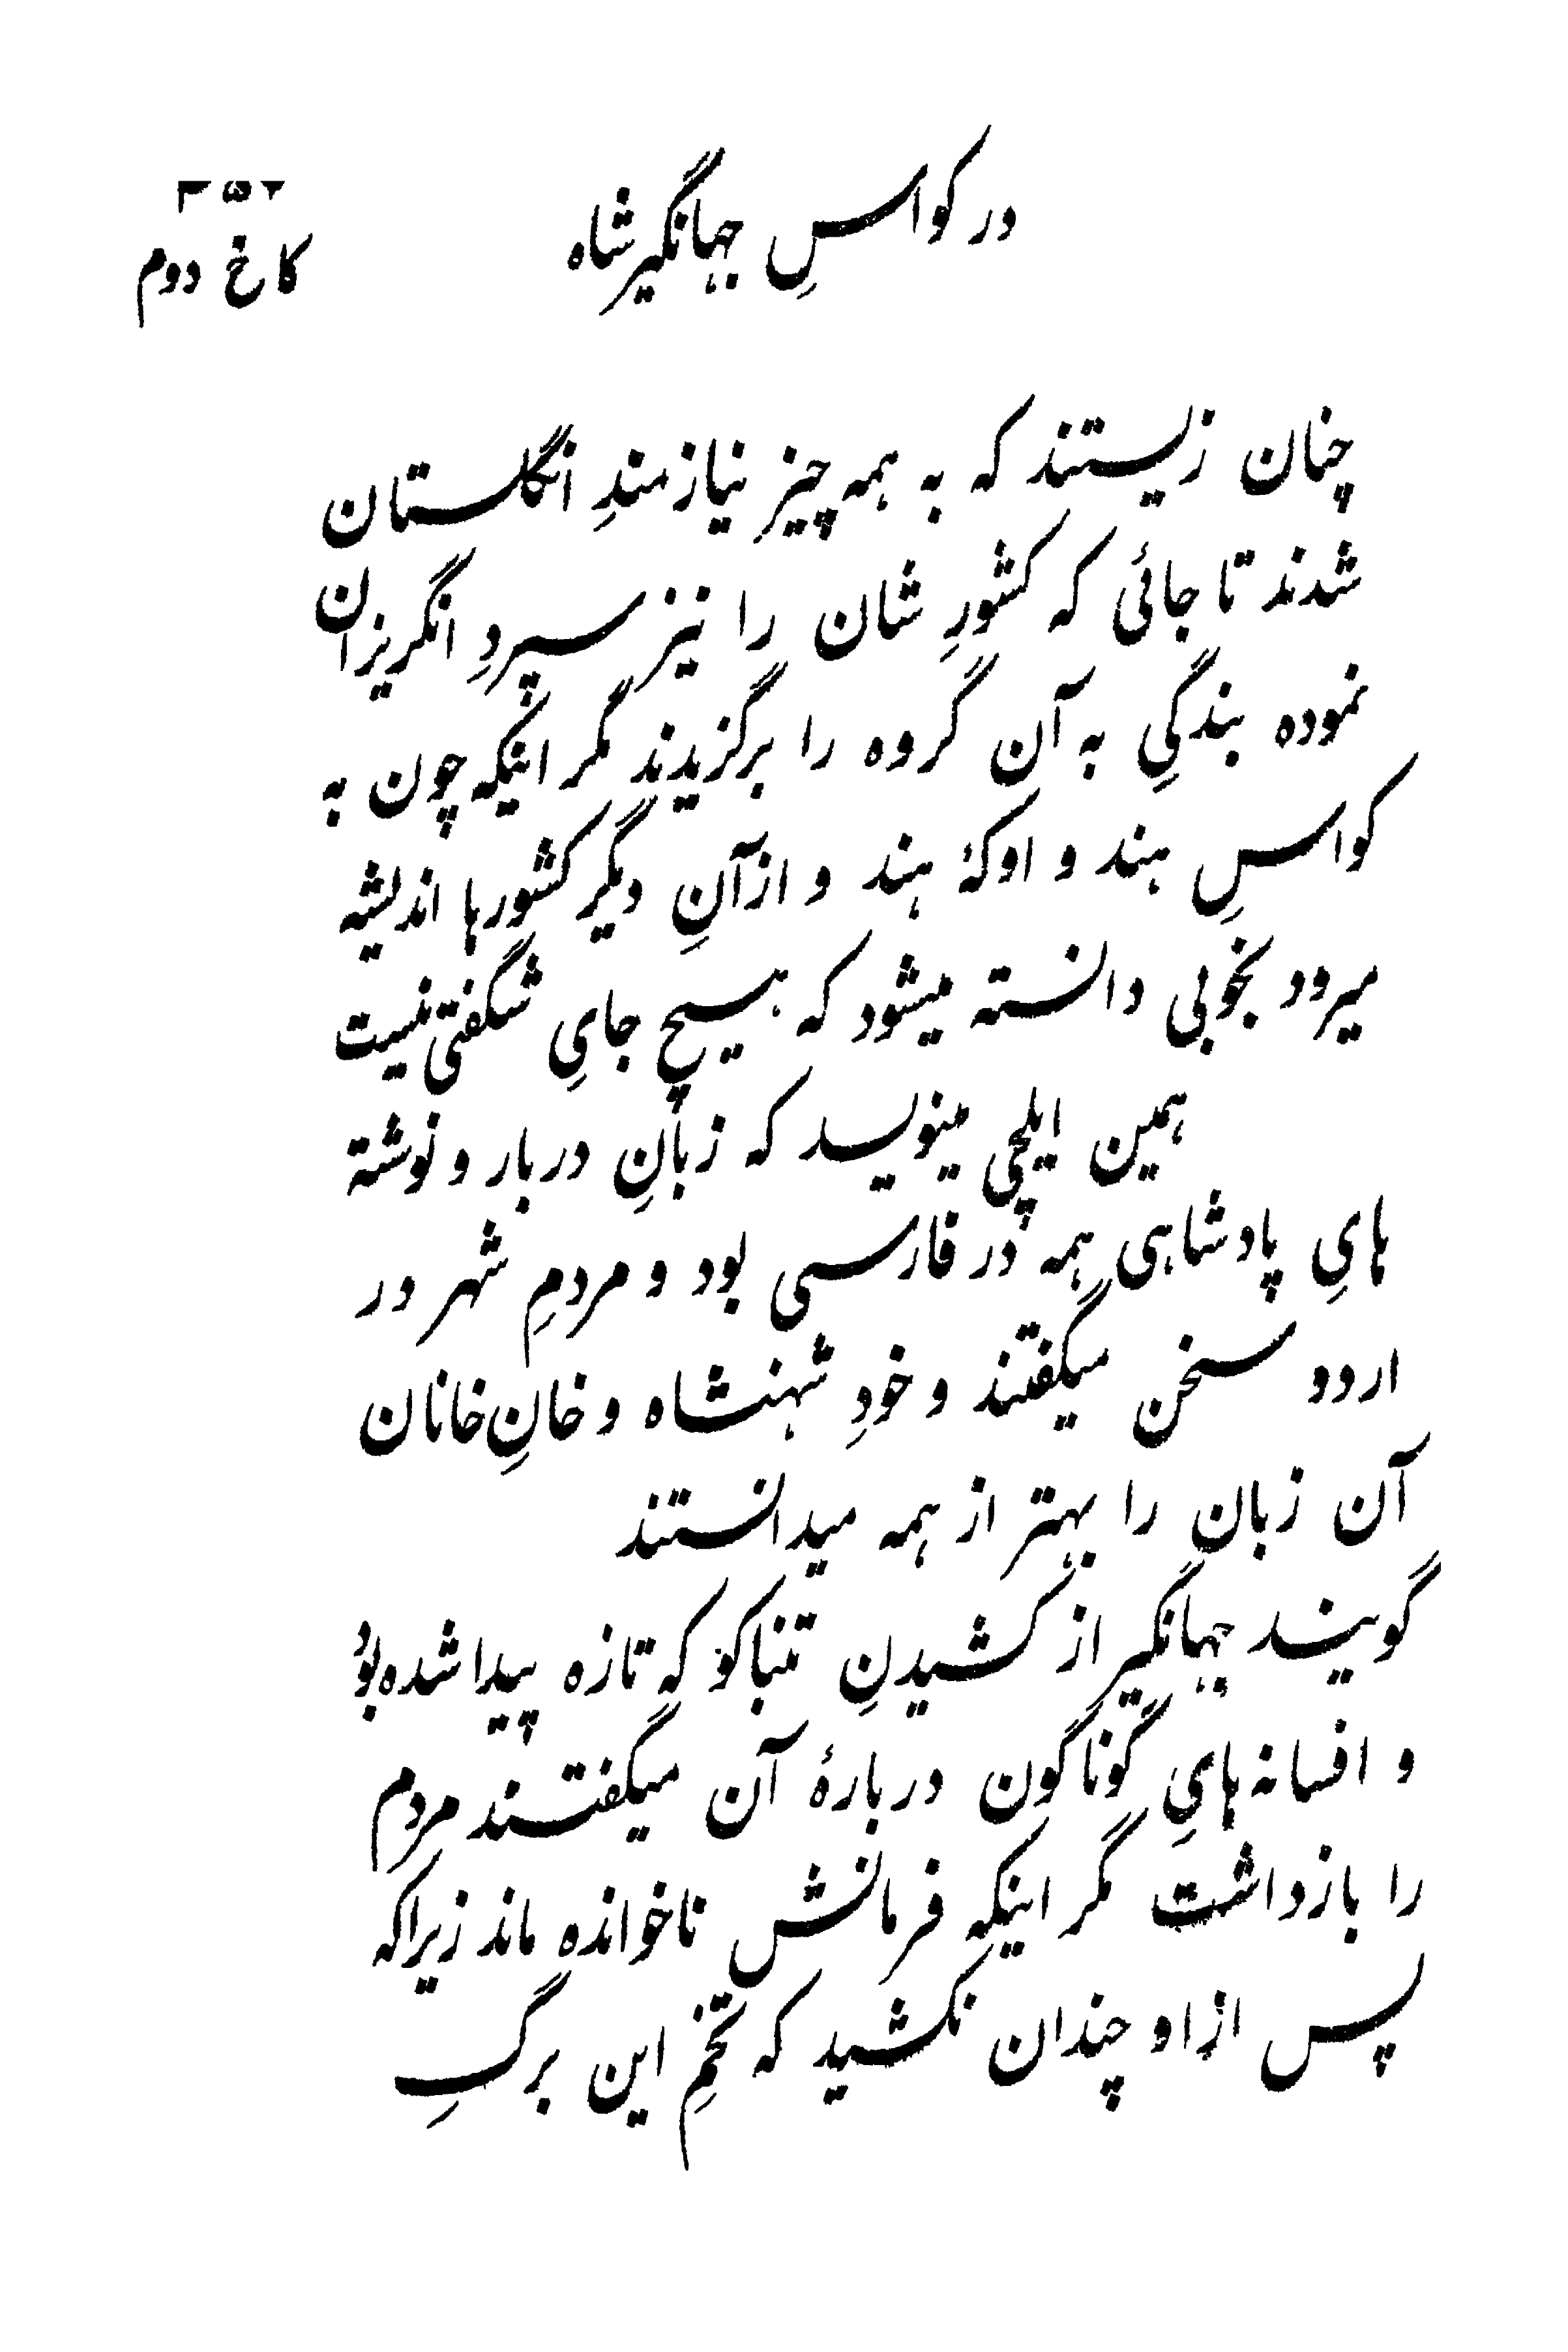 در کواسِ جهانگیر شاه
کاخ دوم
چنان زیستند که به همه چیز نیازمندِ انگلستان
شدند تا جائی که کشورِ شان را نیز سپردِ انگریزان
نموده بندگیِ به آن گروه را برگزیدند مگر اینکه چون به
کواسِ هند و اوکهٔ هند و از آنِ دیگر کشورها اندیشه
میرود بخوبی دانسته میشود که هیچ جایِ شگفتی نیست
همین ایلچی مینویسد که زبانِ دربار و نوشته
هایِ پادشاهی همه در فارسی بود و مردمِ شهر در
اردو سخن میگفتند و خودِ شهنشاه و خانِ خانان
آن زبان را بهتر از همه میدانستند
گویند جهانگیر از کشیدنِ تنباکو که تازه پیدا شده بود
و افسانه هایِ گوناگون دربارهٔ آن میگفتند مردم
را بازداشت مگر اینکه فرمانش ناخوانده ماند زیرا که
پس از او چندان نکشید که تخمِ این برگِ